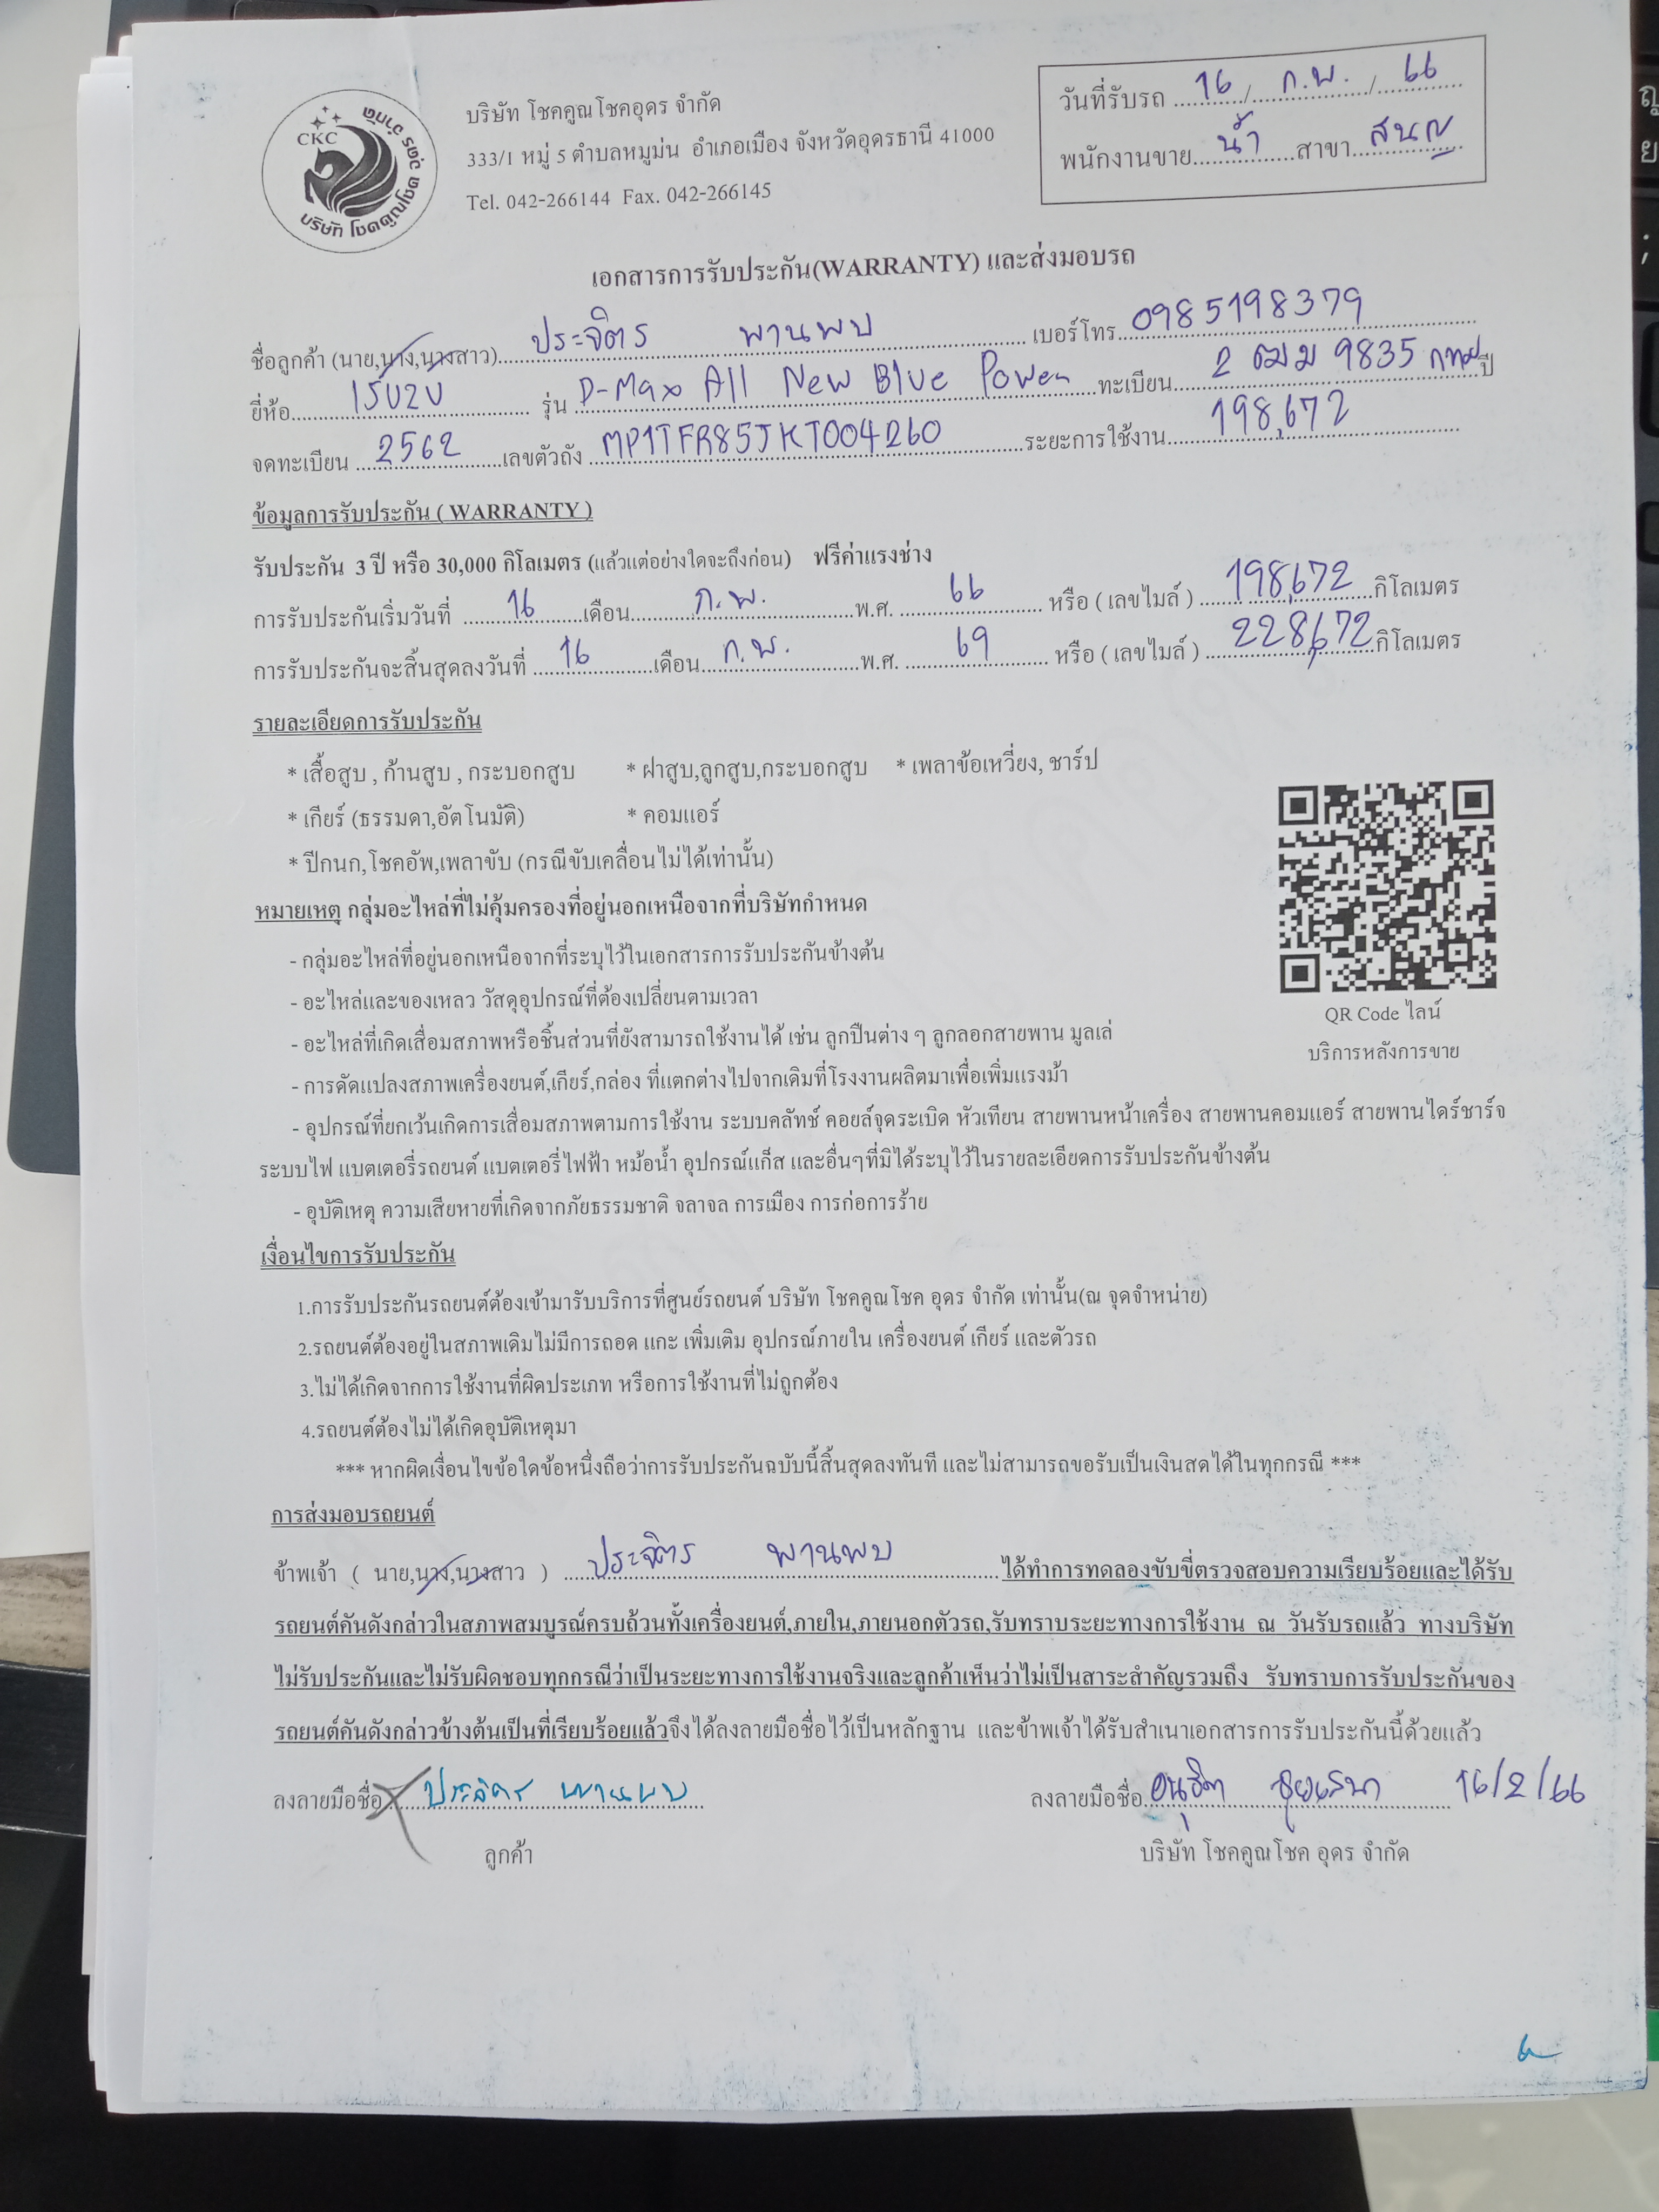 CKC
บริษัท โชคคูณโชค อุดร จำกัด
บริษัท โชคคูณโชคอุดร จำกัด
333/1 หมู่ 5 ตำบลหมูม่น อำเภอเมือง จังหวัดอุดรธานี 41000
Tel. 042-266144 Fax. 042-266145
วันที่รับรถ 16 / ก.พ. / 66
พนักงานขาย น้ำ สาขา สนญ
เอกสารการรับประกัน(WARRANTY) และส่งมอบรถ
ชื่อลูกค้า (นาย,นาง,นางสาว) ประจิตร พานพบ เบอร์โทร 0985198379
ยี่ห้อ อีซูซุ รุ่น D-Max All New Blue Power ทะเบียน 2 ฒม 9835 กทม ปี
จดทะเบียน 2562 เลขตัวถัง MP1TFR85JKT004260 ระยะการใช้งาน 198,672
ข้อมูลการรับประกัน ( WARRANTY )
รับประกัน 3 ปี หรือ 30,000 กิโลเมตร (แล้วแต่อย่างใดจะถึงก่อน) ฟรีค่าแรงช่าง
การรับประกันเริ่มวันที่ 16 เดือน ก.พ. พ.ศ. 66 หรือ ( เลขไมล์ ) 198,672 กิโลเมตร
การรับประกันจะสิ้นสุดลงวันที่ 16 เดือน ก.พ. พ.ศ. 69 หรือ ( เลขไมล์ ) 228,672 กิโลเมตร
รายละเอียดการรับประกัน
* เสื้อสูบ , ก้านสูบ , กระบอกสูบ * ฝาสูบ,ลูกสูบ,กระบอกสูบ * เพลาข้อเหวี่ยง, ชาร์ป
* เกียร์ (ธรรมดา,อัตโนมัติ) * คอมแอร์
* ปีกนก,โชคอัพ,เพลาขับ (กรณีขับเคลื่อนไม่ได้เท่านั้น)
หมายเหตุ กลุ่มอะไหล่ที่ไม่คุ้มครองที่อยู่นอกเหนือจากที่บริษัทกำหนด
- กลุ่มอะไหล่ที่อยู่นอกเหนือจากที่ระบุไว้ในเอกสารการรับประกันข้างต้น
- อะไหล่และของเหลว วัสดุอุปกรณ์ที่ต้องเปลี่ยนตามเวลา
- อะไหล่ที่เกิดเสื่อมสภาพหรือชิ้นส่วนที่ยังสามารถใช้งานได้ เช่น ลูกปืนต่าง ๆ ลูกลอกสายพาน มูลเล่
- การดัดแปลงสภาพเครื่องยนต์,เกียร์,กล่อง ที่แตกต่างไปจากเดิมที่โรงงานผลิตมาเพื่อเพิ่มแรงม้า
- อุปกรณ์ที่ยกเว้นเกิดการเสื่อมสภาพตามการใช้งาน ระบบคลัทช์ คอยล์จุดระเบิด หัวเทียน สายพานหน้าเครื่อง สายพานคอมแอร์ สายพานไดร์ชาร์จ
ระบบไฟ แบตเตอรี่รถยนต์ แบตเตอรี่ไฟฟ้า หม้อน้ำ อุปกรณ์แก็ส และอื่นๆที่มิได้ระบุไว้ในรายละเอียดการรับประกันข้างต้น
- อุบัติเหตุ ความเสียหายที่เกิดจากภัยธรรมชาติ จลาจล การเมือง การก่อการร้าย
QR Code ไลน์
บริการหลังการขาย
เงื่อนไขการรับประกัน
1.การรับประกันรถยนต์ต้องเข้ามารับบริการที่ศูนย์รถยนต์ บริษัท โชคคูณโชค อุดร จำกัด เท่านั้น(ณ จุดจำหน่าย)
2.รถยนต์ต้องอยู่ในสภาพเดิมไม่มีการถอด แกะ เพิ่มเติม อุปกรณ์ภายใน เครื่องยนต์ เกียร์ และตัวรถ
3.ไม่ได้เกิดจากการใช้งานที่ผิดประเภท หรือการใช้งานที่ไม่ถูกต้อง
4.รถยนต์ต้องไม่ได้เกิดอุบัติเหตุมา
*** หากผิดเงื่อนไขข้อใดข้อหนึ่งถือว่าการรับประกันฉบับนี้สิ้นสุดลงทันที และไม่สามารถขอรับเป็นเงินสดได้ในทุกกรณี ***
การส่งมอบรถยนต์
ข้าพเจ้า ( นาย,นาง,นางสาว ) ประจิตร พานพบ ได้ทำการทดลองขับขี่ตรวจสอบความเรียบร้อยและได้รับ
รถยนต์คันดังกล่าวในสภาพสมบูรณ์ครบถ้วนทั้งเครื่องยนต์,ภายใน,ภายนอกตัวรถ,รับทราบระยะทางการใช้งาน ณ วันรับรถแล้ว ทางบริษัท
ไม่รับประกันและไม่รับผิดชอบทุกกรณีว่าเป็นระยะทางการใช้งานจริงและลูกค้าเห็นว่าไม่เป็นสาระสำคัญรวมถึง รับทราบการรับประกันของ
รถยนต์คันดังกล่าวข้างต้นเป็นที่เรียบร้อยแล้วจึงได้ลงลายมือชื่อไว้เป็นหลักฐาน และข้าพเจ้าได้รับสำเนาเอกสารการรับประกันนี้ด้วยแล้ว
ลงลายมือชื่อ ประจิตร พานพบ ลงลายมือชื่อ 16/2/66
ลูกค้า บริษัท โชคคูณโชค อุดร จำกัด